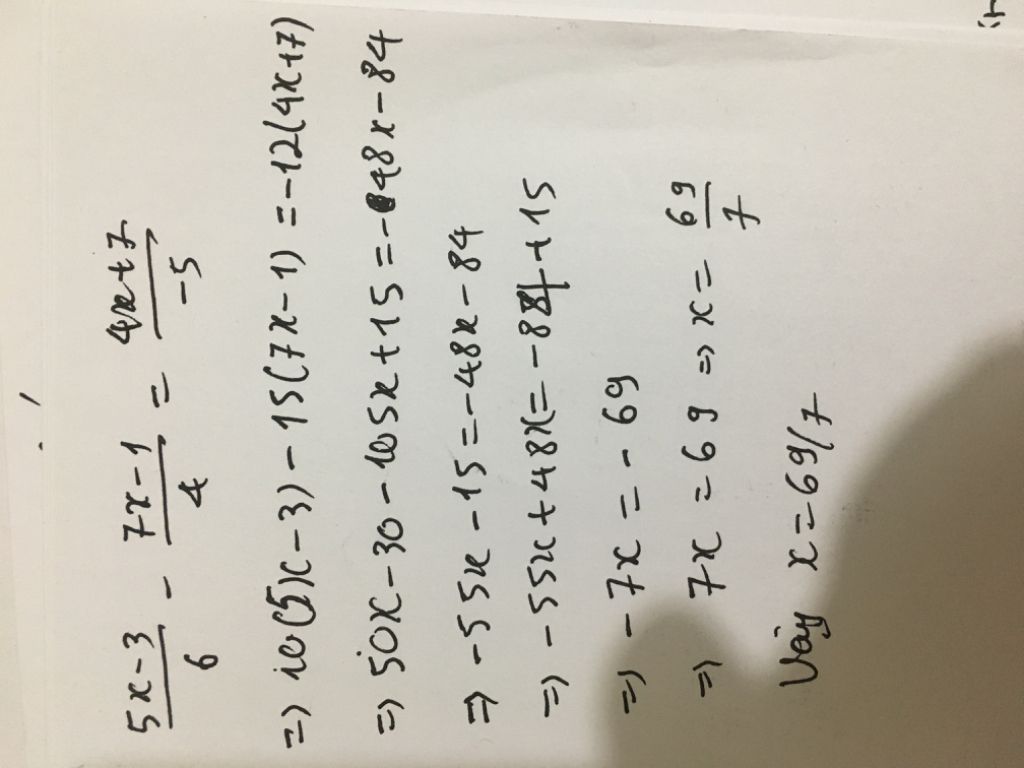 (5x-3)/6 - (7x-1)/4 = (4x+7)/-5
=> 10(5x-3) - 15(7x-1) = -12(4x+7)
=> 50x - 30 - 105x + 15 = -48x - 84
=> -55x - 15 = -48x - 84
=> -55x + 48x = -84 + 15
=> -7x = -69
=> 7x = 69 => x = 69/7
Vậy x = 69/7